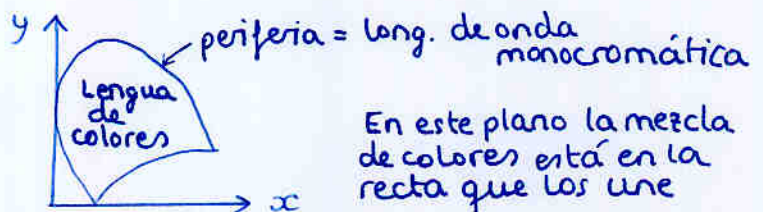 y
periferia = long. de onda
monocromática
Lengua
de
colores
En este plano la mezcla
de colores está en la
recta que los une
x